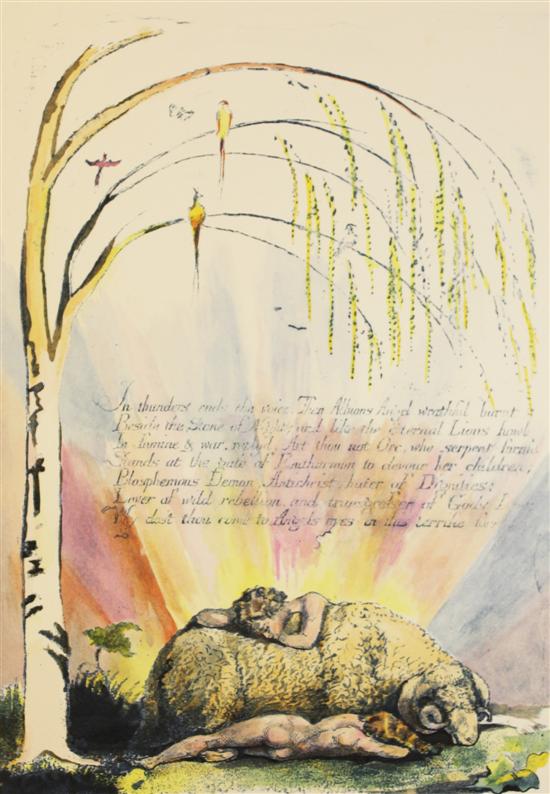 In thunders ends the voice. Then Albions Angel wrathful burnt
Beside the Stone of Night; and like the Eternal Lions howl
In famine & war, reply'd. Art thou not Orc, who serpent form'd
Stands at the gate of Enitharmon to devour her children;
Blasphemous Demon, Antichrist, hater of Dignities;
Lover of wild rebellion, and transgresser of Gods
Why dost thou come to Angels eyes in this terrific